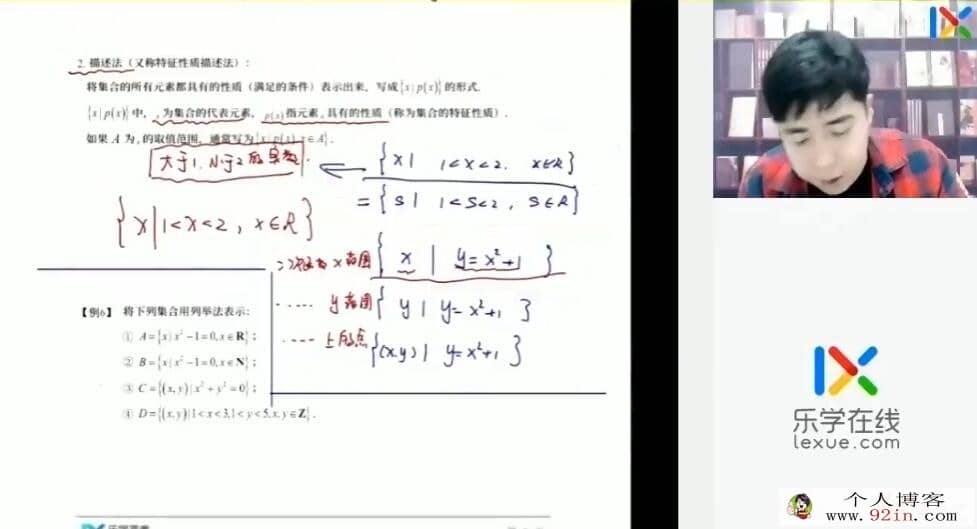 2. 描述法（又称特征性质描述法）：
将集合的所有元素都具有的性质（满足的条件）表示出来，写成{x|p(x)}的形式.
{x|p(x)}中，x为集合的代表元素，p(x)指元素x具有的性质（称为集合的特征性质）.
如果 A 为x的取值范围，通常写为{x|p(x), x∈A}.
大于1.小于2的实数.
{x| 1<x<2. x∈R}
={s| 1<s<2, s∈R}
{x|1<x<2, x∈R}
二次函数x范围{x | y=x²+1 }
..... y范围{y| y=x²+1 }
..... 上的点{(x.y)| y=x²+1 }
【例6】 将下列集合用列举法表示：
① A={x|x²-1=0,x∈R}；
② B={x|x²-1=0,x∈N}；
③ C={(x,y)|x²+y²=0}；
④ D={(x,y)|1<x<3,1<y<5,x,y∈Z}.
乐学在线
lexue.com
个人博客
www.92in.com